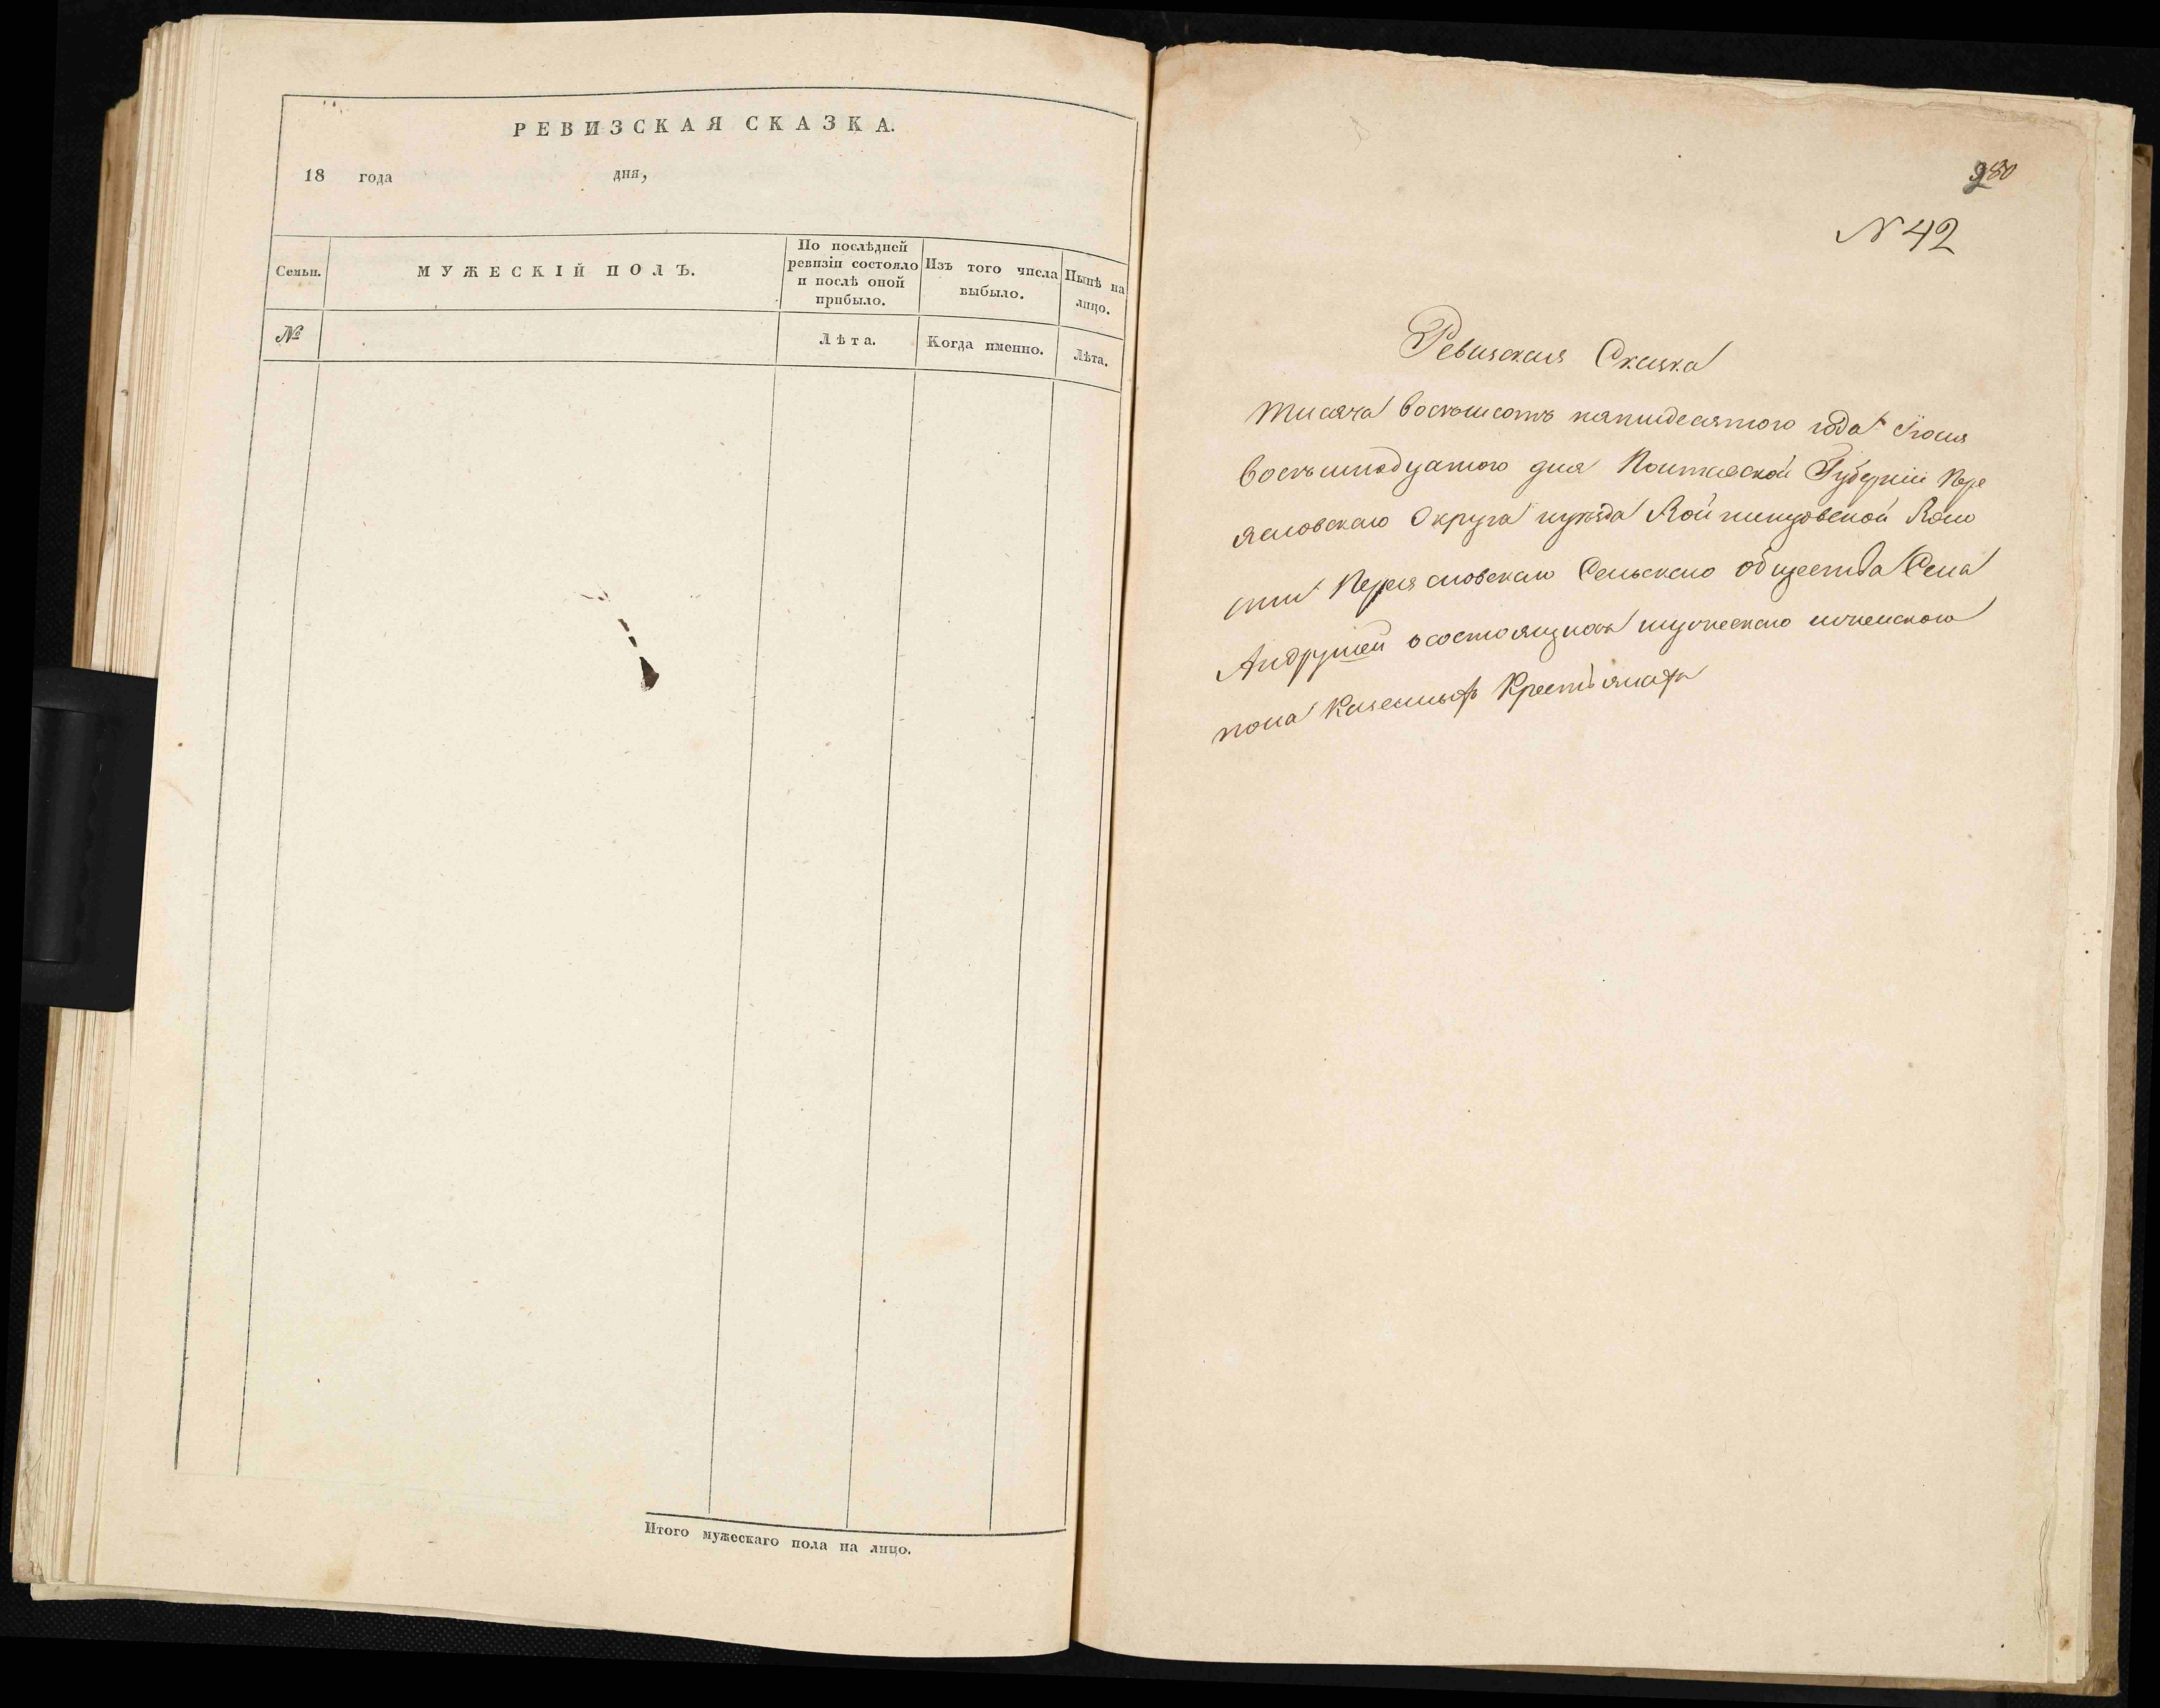 РЕВИЗСКАЯ СКАЗКА.
18 года дня,
Семьи.
МУЖЕСКІЙ ПОЛЪ.
По послѣдней
ревизіи состояло
и послѣ оной
прибыло.
Изъ того числа
выбыло.
Нынѣ на
лицо.
№
Лѣта.
Когда именно.
Лѣта.
Итого мужескаго пола на лицо.
N 42
Ревизская Сказка
тисяча восемьсотъ пятидесятого года
восемьнадцатого дня Полтавской Губерніи Пере
ясловскаго Округа иуѣзда Воло
сти Переясловскаго Сельскаго общества Села
Андрушей осостоящихъ мужескаго иженскаго
пола Казенныхъ Крестьянахъ